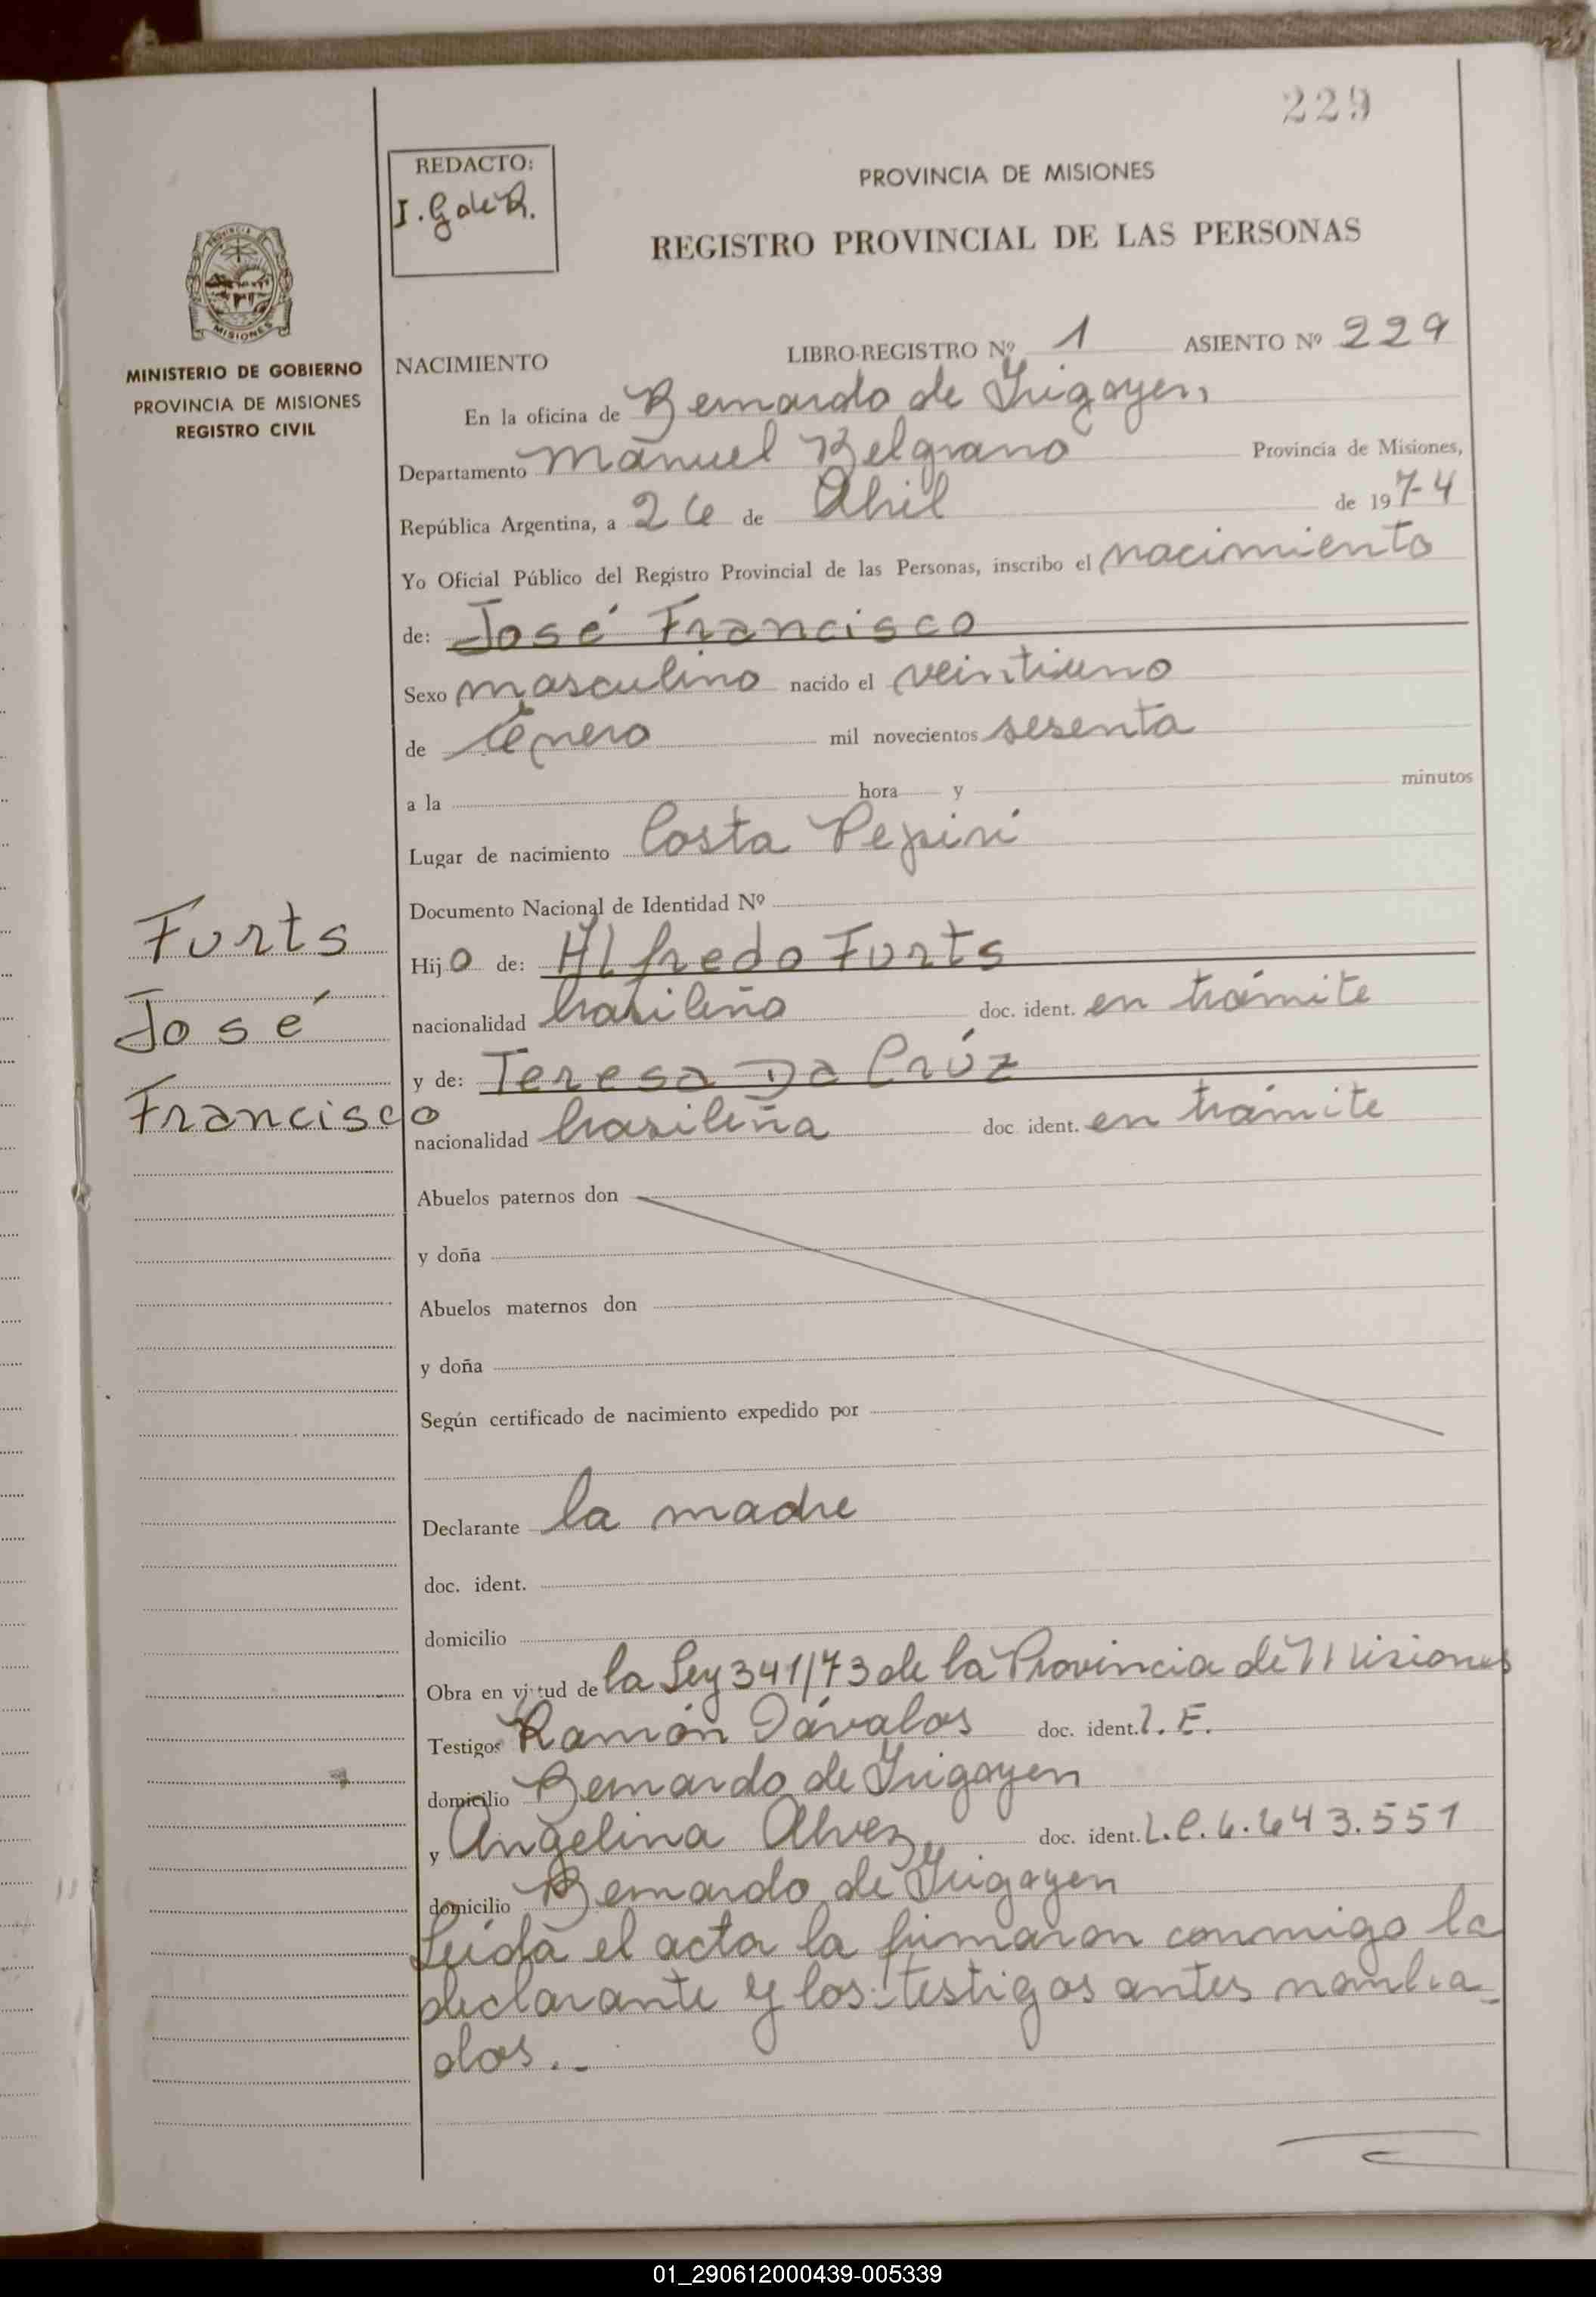 229
REDACTO:
I. G de R.
PROVINCIA DE MISIONES
REGISTRO PROVINCIAL DE LAS PERSONAS
PROVINCIA
MISIONES
MINISTERIO DE GOBIERNO
PROVINCIA DE MISIONES
REGISTRO CIVIL
NACIMIENTO LIBRO-REGISTRO Nº 1 ASIENTO Nº 229
En la oficina de Bernardo de Irigoyen,
Departamento Manuel Belgrano Provincia de Misiones,
República Argentina, a 26 de Abril de 1974
Yo Oficial Público del Registro Provincial de las Personas, inscribo el nacimiento
de: José Francisco
Sexo masculino nacido el veintiuno
de Enero mil novecientos sesenta
a la hora y minutos
Lugar de nacimiento Costa Pepirí
Documento Nacional de Identidad Nº
Furts
José
Francisco
Hijo de: Alfredo Furts
nacionalidad brasileña doc. ident. en trámite
y de: Teresa Da Crúz
nacionalidad brasileña doc ident. en trámite
Abuelos paternos don
y doña
Abuelos maternos don
y doña
Según certificado de nacimiento expedido por
Declarante la madre
doc. ident.
domicilio
Obra en virtud de la Ley 341/73 de la Provincia de Misiones
Testigos Ramón Dávalos doc. ident. I. E.
domicilio Bernardo de Irigoyen
y Angelina Alvez, doc. ident. L.C. 6.643.551
domicilio Bernardo de Irigoyen
Leída el acta la firmaron conmigo la
declarante y los testigos antes nombra-
dos.-
01_290612000439-005339